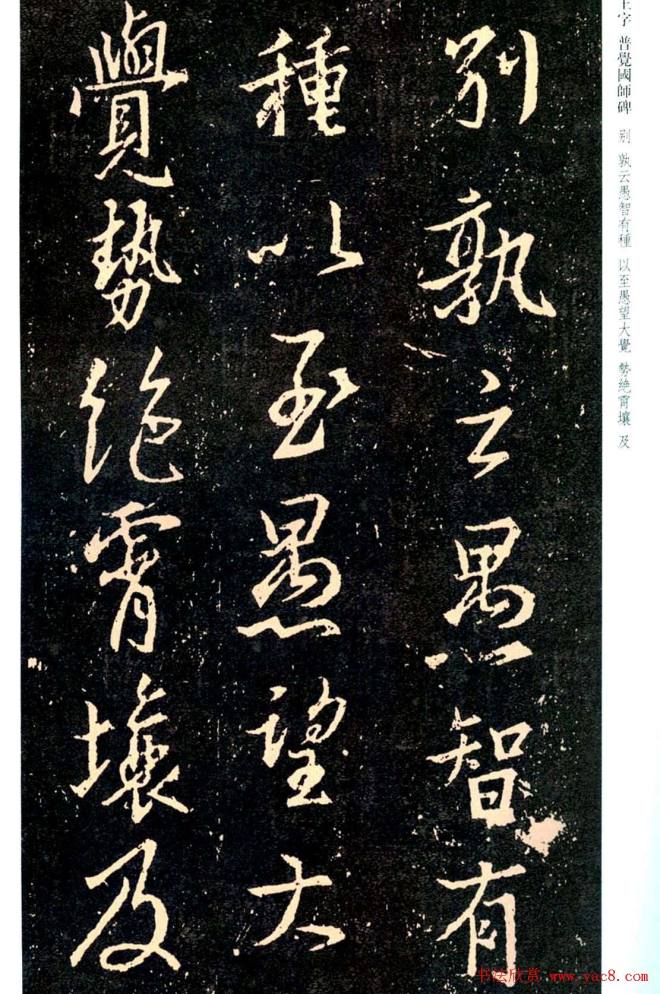 王字 普覺國師碑 別 孰云愚智有種 以至愚望大覺 勢絶霄壤 及
別孰云愚智有
種以至愚望大
覺勢絶霄壤及
书法欣赏 www.yac8.com